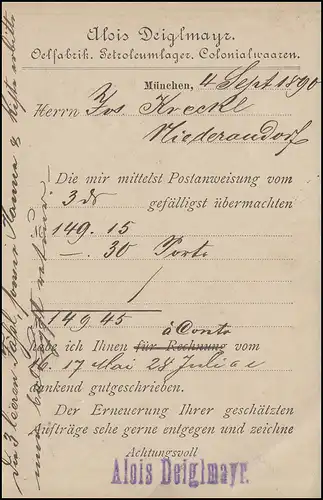 Alois Deiglmayr.
Oelfabrik. Petroleumlager. Colonialwaaren.
München, 4 Sept 1890
Herrn Jos Kreckl
Niederaudorf
Die mir mittelst Postanweisung vom
3 ds gefälligst übermachten
149. 15
—. 30 Porto
149 45
à Conto
habe ich Ihnen für Rechnung vom
16. 17 Mai 28 Juli a c
dankend gutgeschrieben.
Der Erneuerung Ihrer geschätzten
Aufträge sehe gerne entgegen und zeichne
Achtungsvoll
Alois Deiglmayr.
3 leeren